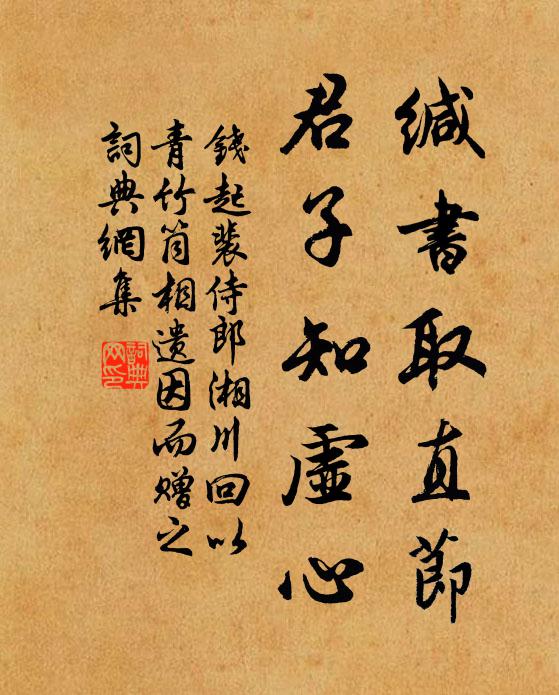 缄書取直節
君子知虛心
錢起裴侍郎湘川回以
青竹筒相遺因而贈之
詞典網集
詞典
网印